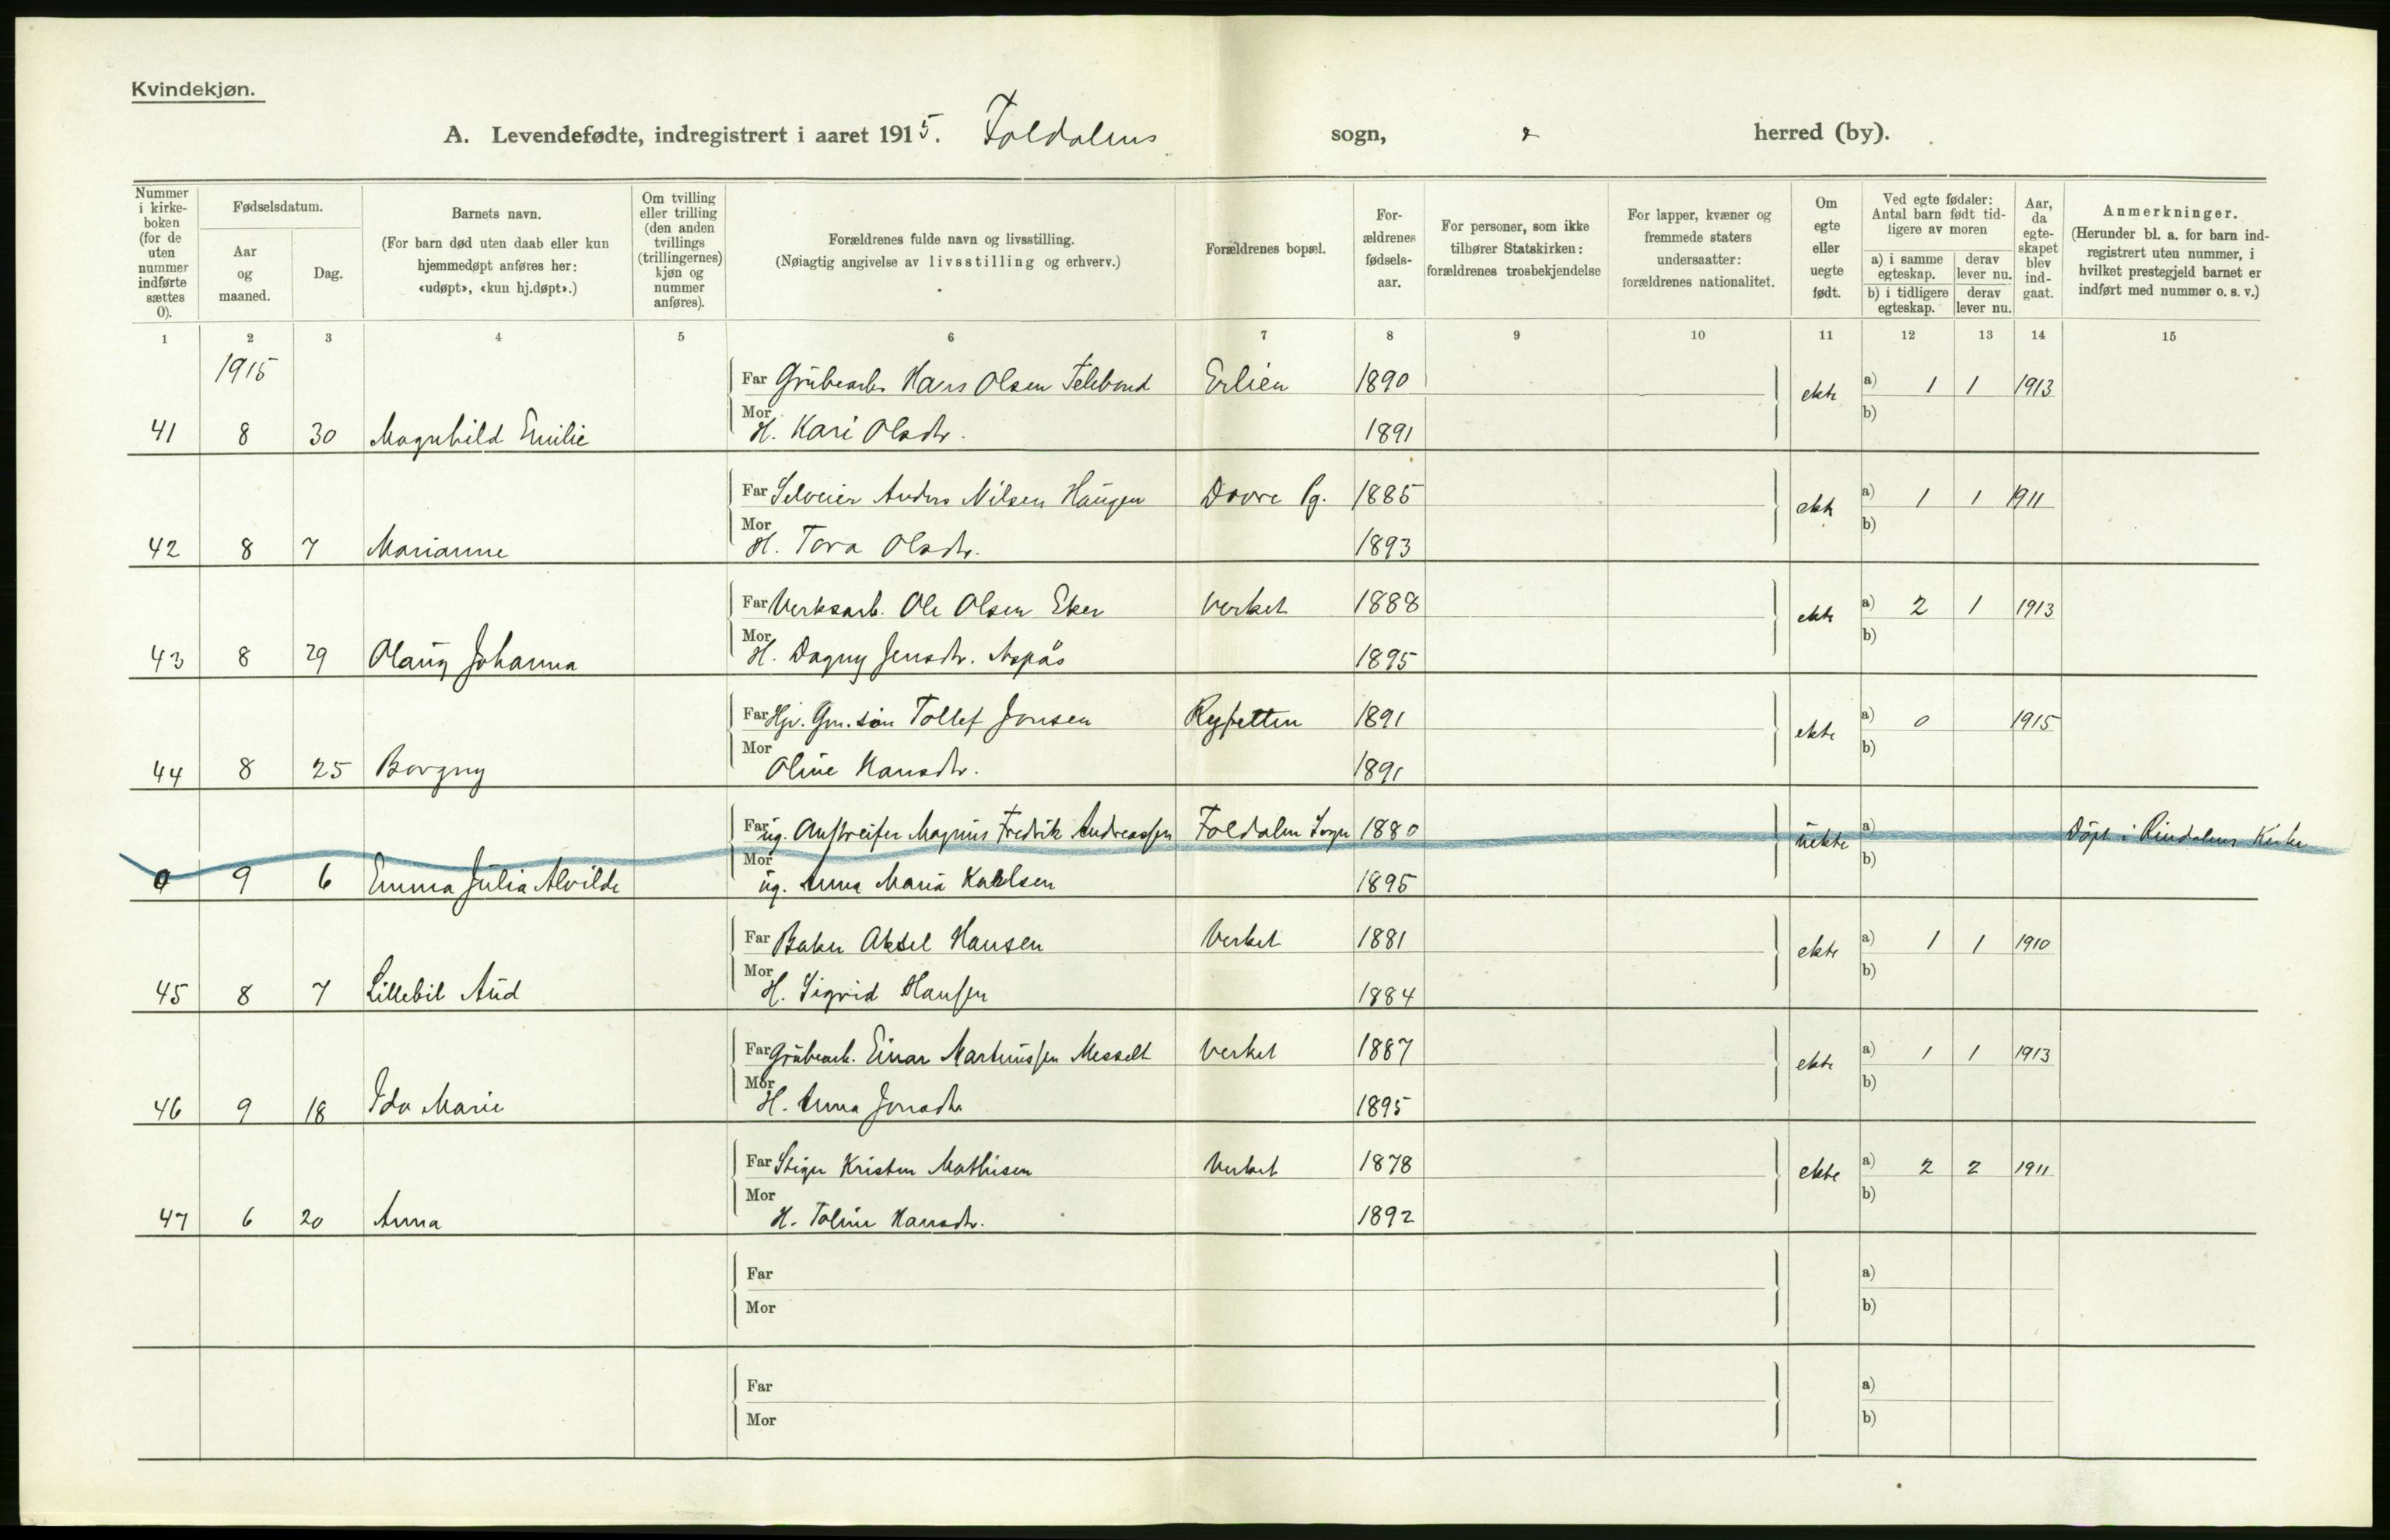 Kvindekjøn.
A. Levendefødte, indregistrert i aaret 1915. Foldalens sogn, herred (by).
Nummer i kirke-boken (for de uten nummer indførte sættes 0).
Fødselsdatum.
Aar og maaned.
Dag.
Barnets navn.
(For barn død uten daab eller kun hjemmedøpt anføres her: «udøpt», «kun hj.døpt».)
Om tvilling eller trilling (den anden tvillings (trillingernes) kjøn og nummer anføres).
Forældrenes fulde navn og livsstilling.
(Nøiagtig angivelse av livsstilling og erhverv.)
Forældrenes bopæl.
For-ældrenes fødsels-aar.
For personer, som ikke tilhører Statskirken: forældrenes trosbekjendelse
For lapper, kvæner og fremmede staters undersaatter: forældrenes nationalitet.
Om egte eller uegte født.
Ved egte fødsler: Antal barn født tid-ligere av moren
a) i samme egteskap.
derav lever nu.
b) i tidligere egteskap.
derav lever nu.
Aar, da egte-skapet blev ind-gaat.
Anmerkninger.
(Herunder bl. a. for barn ind-registrert uten nummer, i hvilket prestegjeld barnet er indført med nummer o. s. v.)
1 2 3 4 5 6 7 8 9 10 11 12 13 14 15
1915
Far Grubearb. Hans Olsen Erlien 1890 ekte a) 1 1 1913
41 8 30 Magnhild Emilie Mor H. Kari Olsdtr. 1891 b)
Far Selveier Anders Nilsen Haugen Dovre Pg. 1885 ekte a) 1 1 1911
42 8 7 Marianne Mor H. Tora Olsdtr. 1893 b)
Far Verksarb. Ole Olsen Eker Verket 1888 ekte a) 2 1 1913
43 8 29 Olaug Johanna Mor H. Dagny Jensdtr. Aspås 1895 b)
Far Hjv. Gm. søn Tollef Jonsen 1891 ekte a) 0 1915
44 8 25 Borgny Mor Oline Hansdtr. 1891 b)
Far ug. Magnus Fredrik Andreassen Foldalen Sogn 1880 uekte a) Døpt i Rindalens Kirke
0 9 6 Emma Julia Alvilde Mor ug. Anna Maria Karlsen 1895 b)
Far Baker Aksel Hansen Verket 1881 ekte a) 1 1 1910
45 8 7 Lillebil Aud Mor H. Sigrid Hansen 1884 b)
Far Grubearb. Einar Martinussen Messelt Verket 1887 ekte a) 1 1 1913
46 9 18 Ida Marie Mor H. Anna Jonsdtr. 1895 b)
Far Stiger Kristen Mathisen Verket 1878 ekte a) 2 2 1911
47 6 20 Anna Mor H. Toline Hansdtr. 1892 b)
Far a)
Mor b)
Far a)
Mor b)